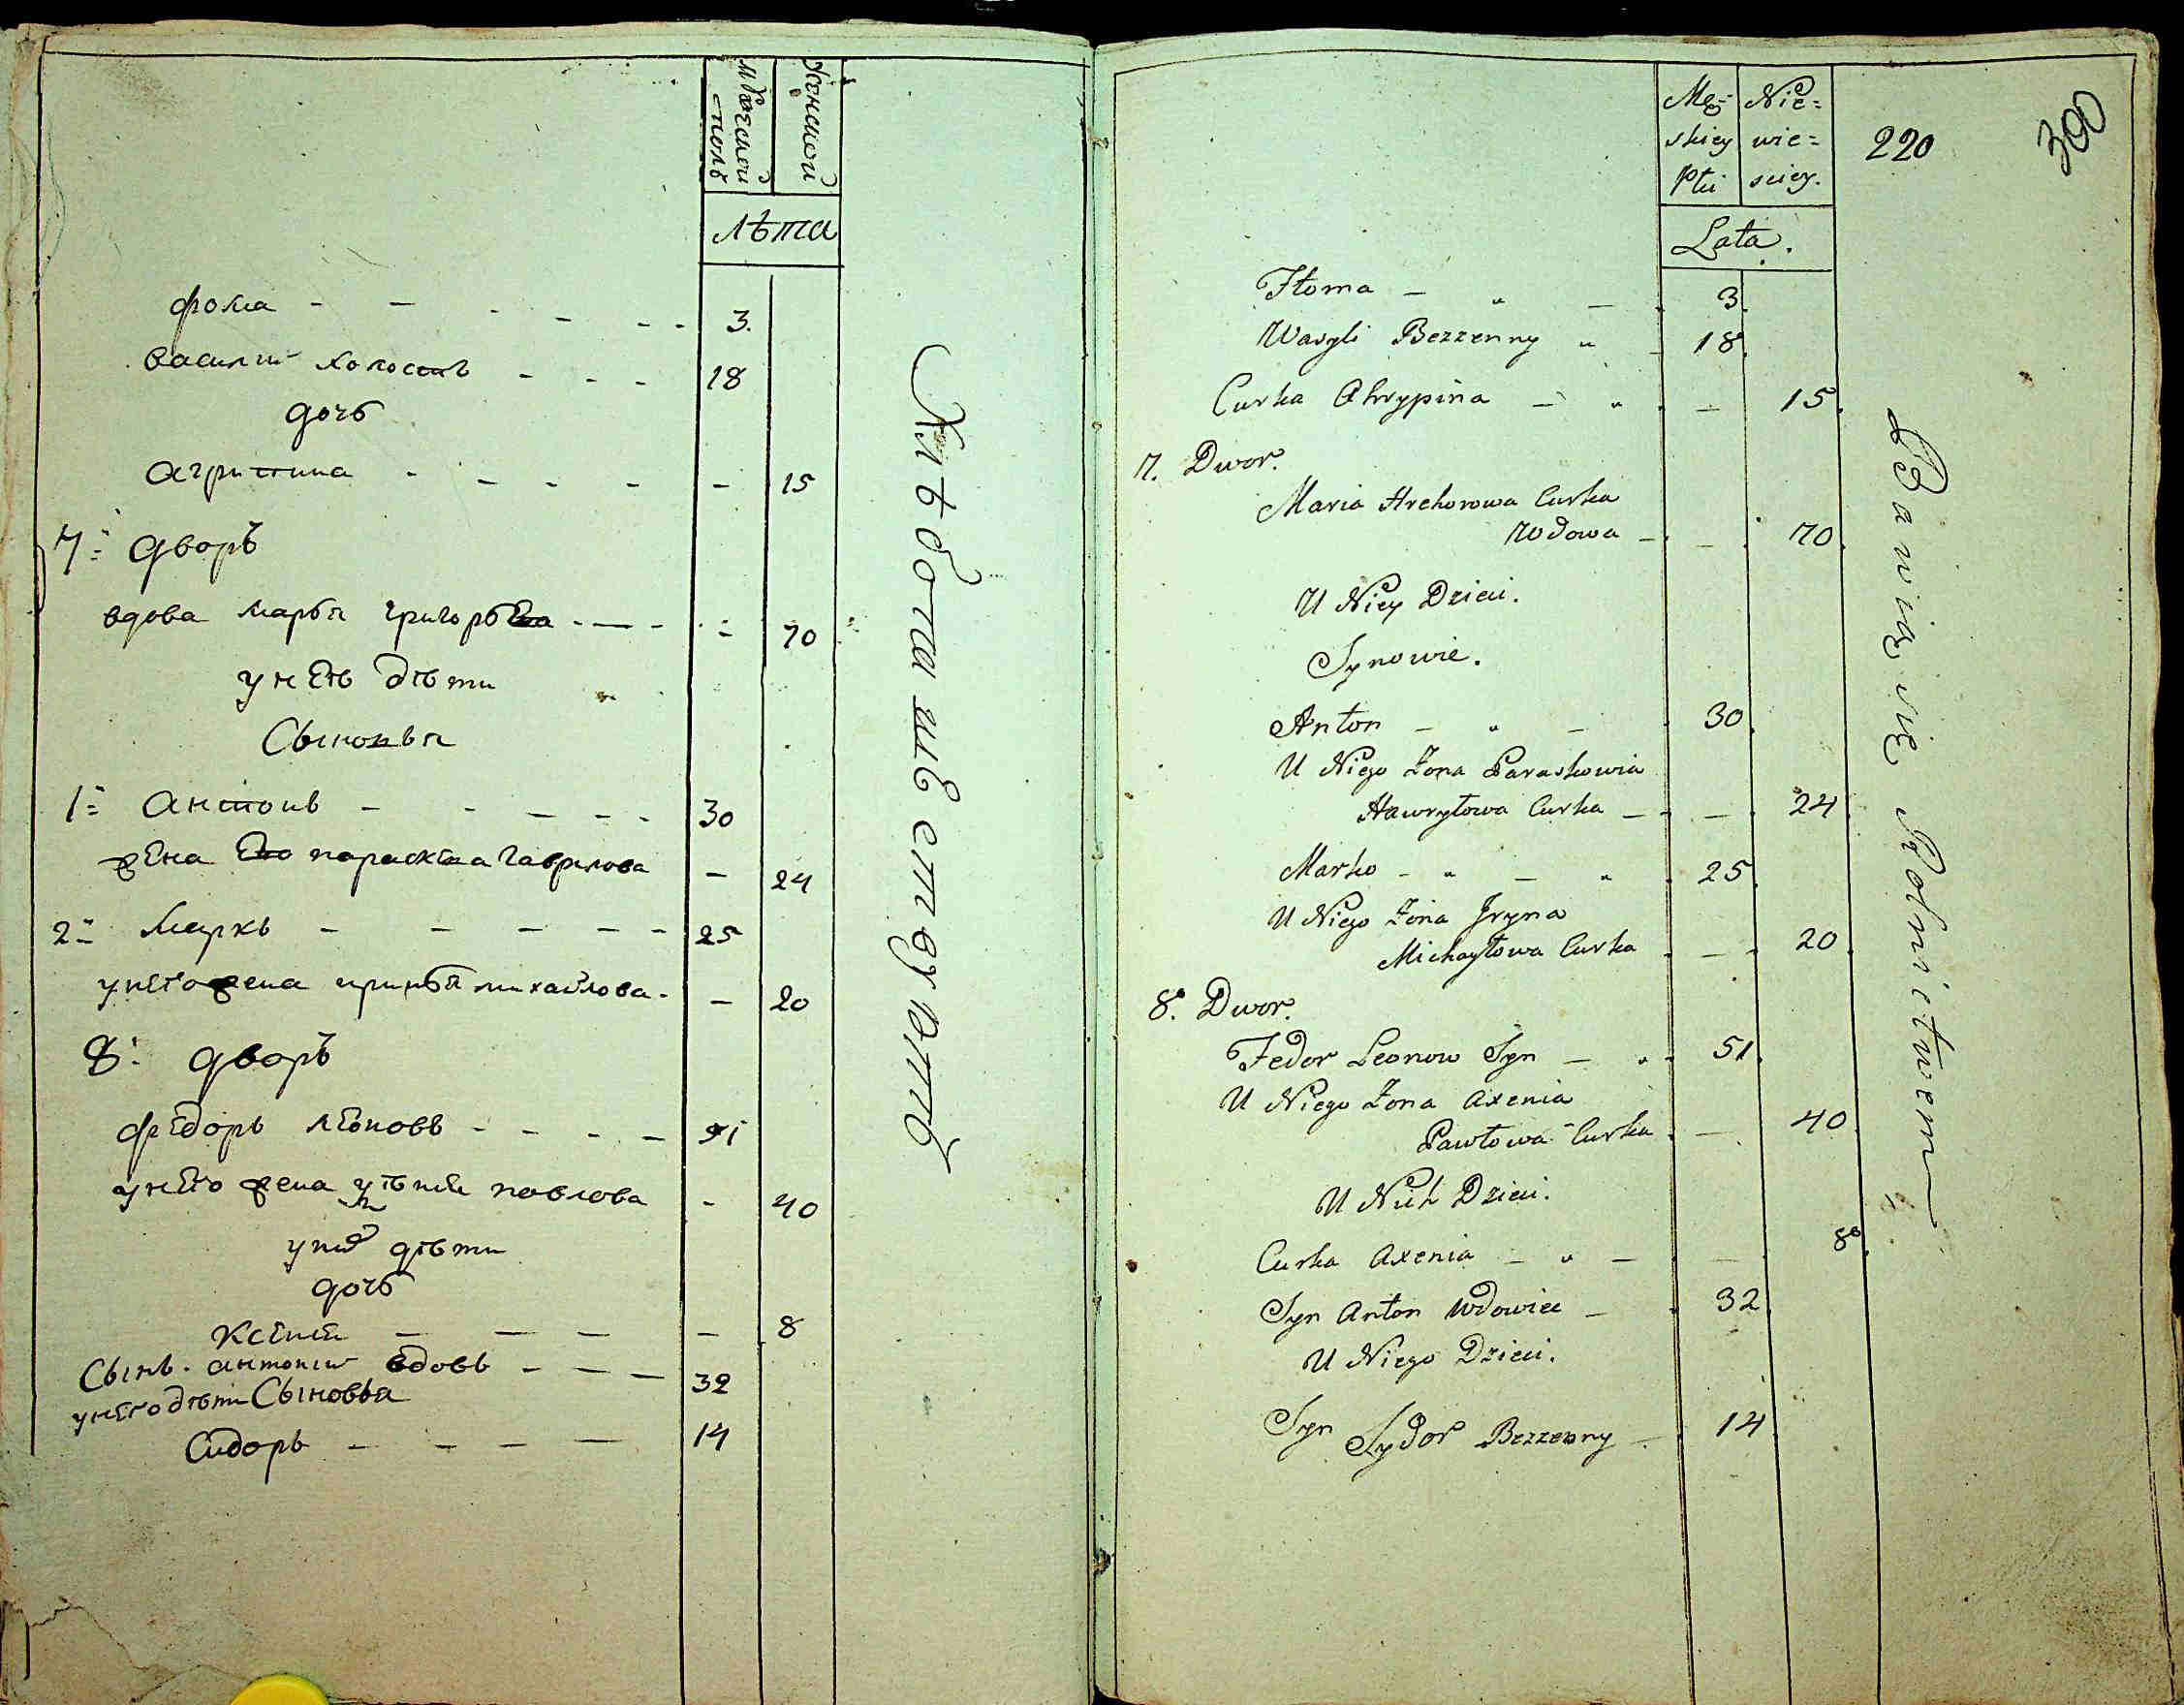 Мужеской полъ
Женской
лѣта
фома - - - - - - 3.
василий холостъ - - - 18
дочь
агрипина - - - - - 15
7: дворъ
вдова марья григорьева - - - - 70
у нея дѣти
Сыновья
1: антонъ - - - - - 30
жена его параскева гаврилова - 24
2: маркъ - - - - - 25
у него жена иринья михайлова - - 20
8: дворъ
федоръ леоновъ - - - - 51
у него жена павлова - 40
у них дѣти
дочь
Ксения - - - - 8
Сынъ антоний вдовъ - - - 32
у него дѣти Сыновья
Сидоръ - - - - 14
Хлѣбопашествуютъ
Mę=
skiey
Płci
Nie=
wie=
sciey.
220
300
Lata.
Fłoma - " - 3.
Wasyli Bezzenny " - 18.
Curka Ahrypina - " - 15.
7. Dwor.
Maria Hrehorowa Curka
Wdowa - - 70.
U Niey Dzieci.
Synowie.
Anton - " - 30.
U Niego Żona Paraskowia
Hawryłowa Curka - - 24.
Marko - " - " 25.
U Niego Żona Jryna
Michayłowa Curka - 20.
8. Dwor.
Fedor Leonow Syn - " 51.
U Niego Żona Axenia
Pawłowa Curka - 40.
U Nich Dzieci.
Curka Axenia - " - 8.
Syn Anton Wdowiec - 32.
U Niego Dzieci.
Syn Sydor Bezzenny - 14.
Bawią się Rolnictwem